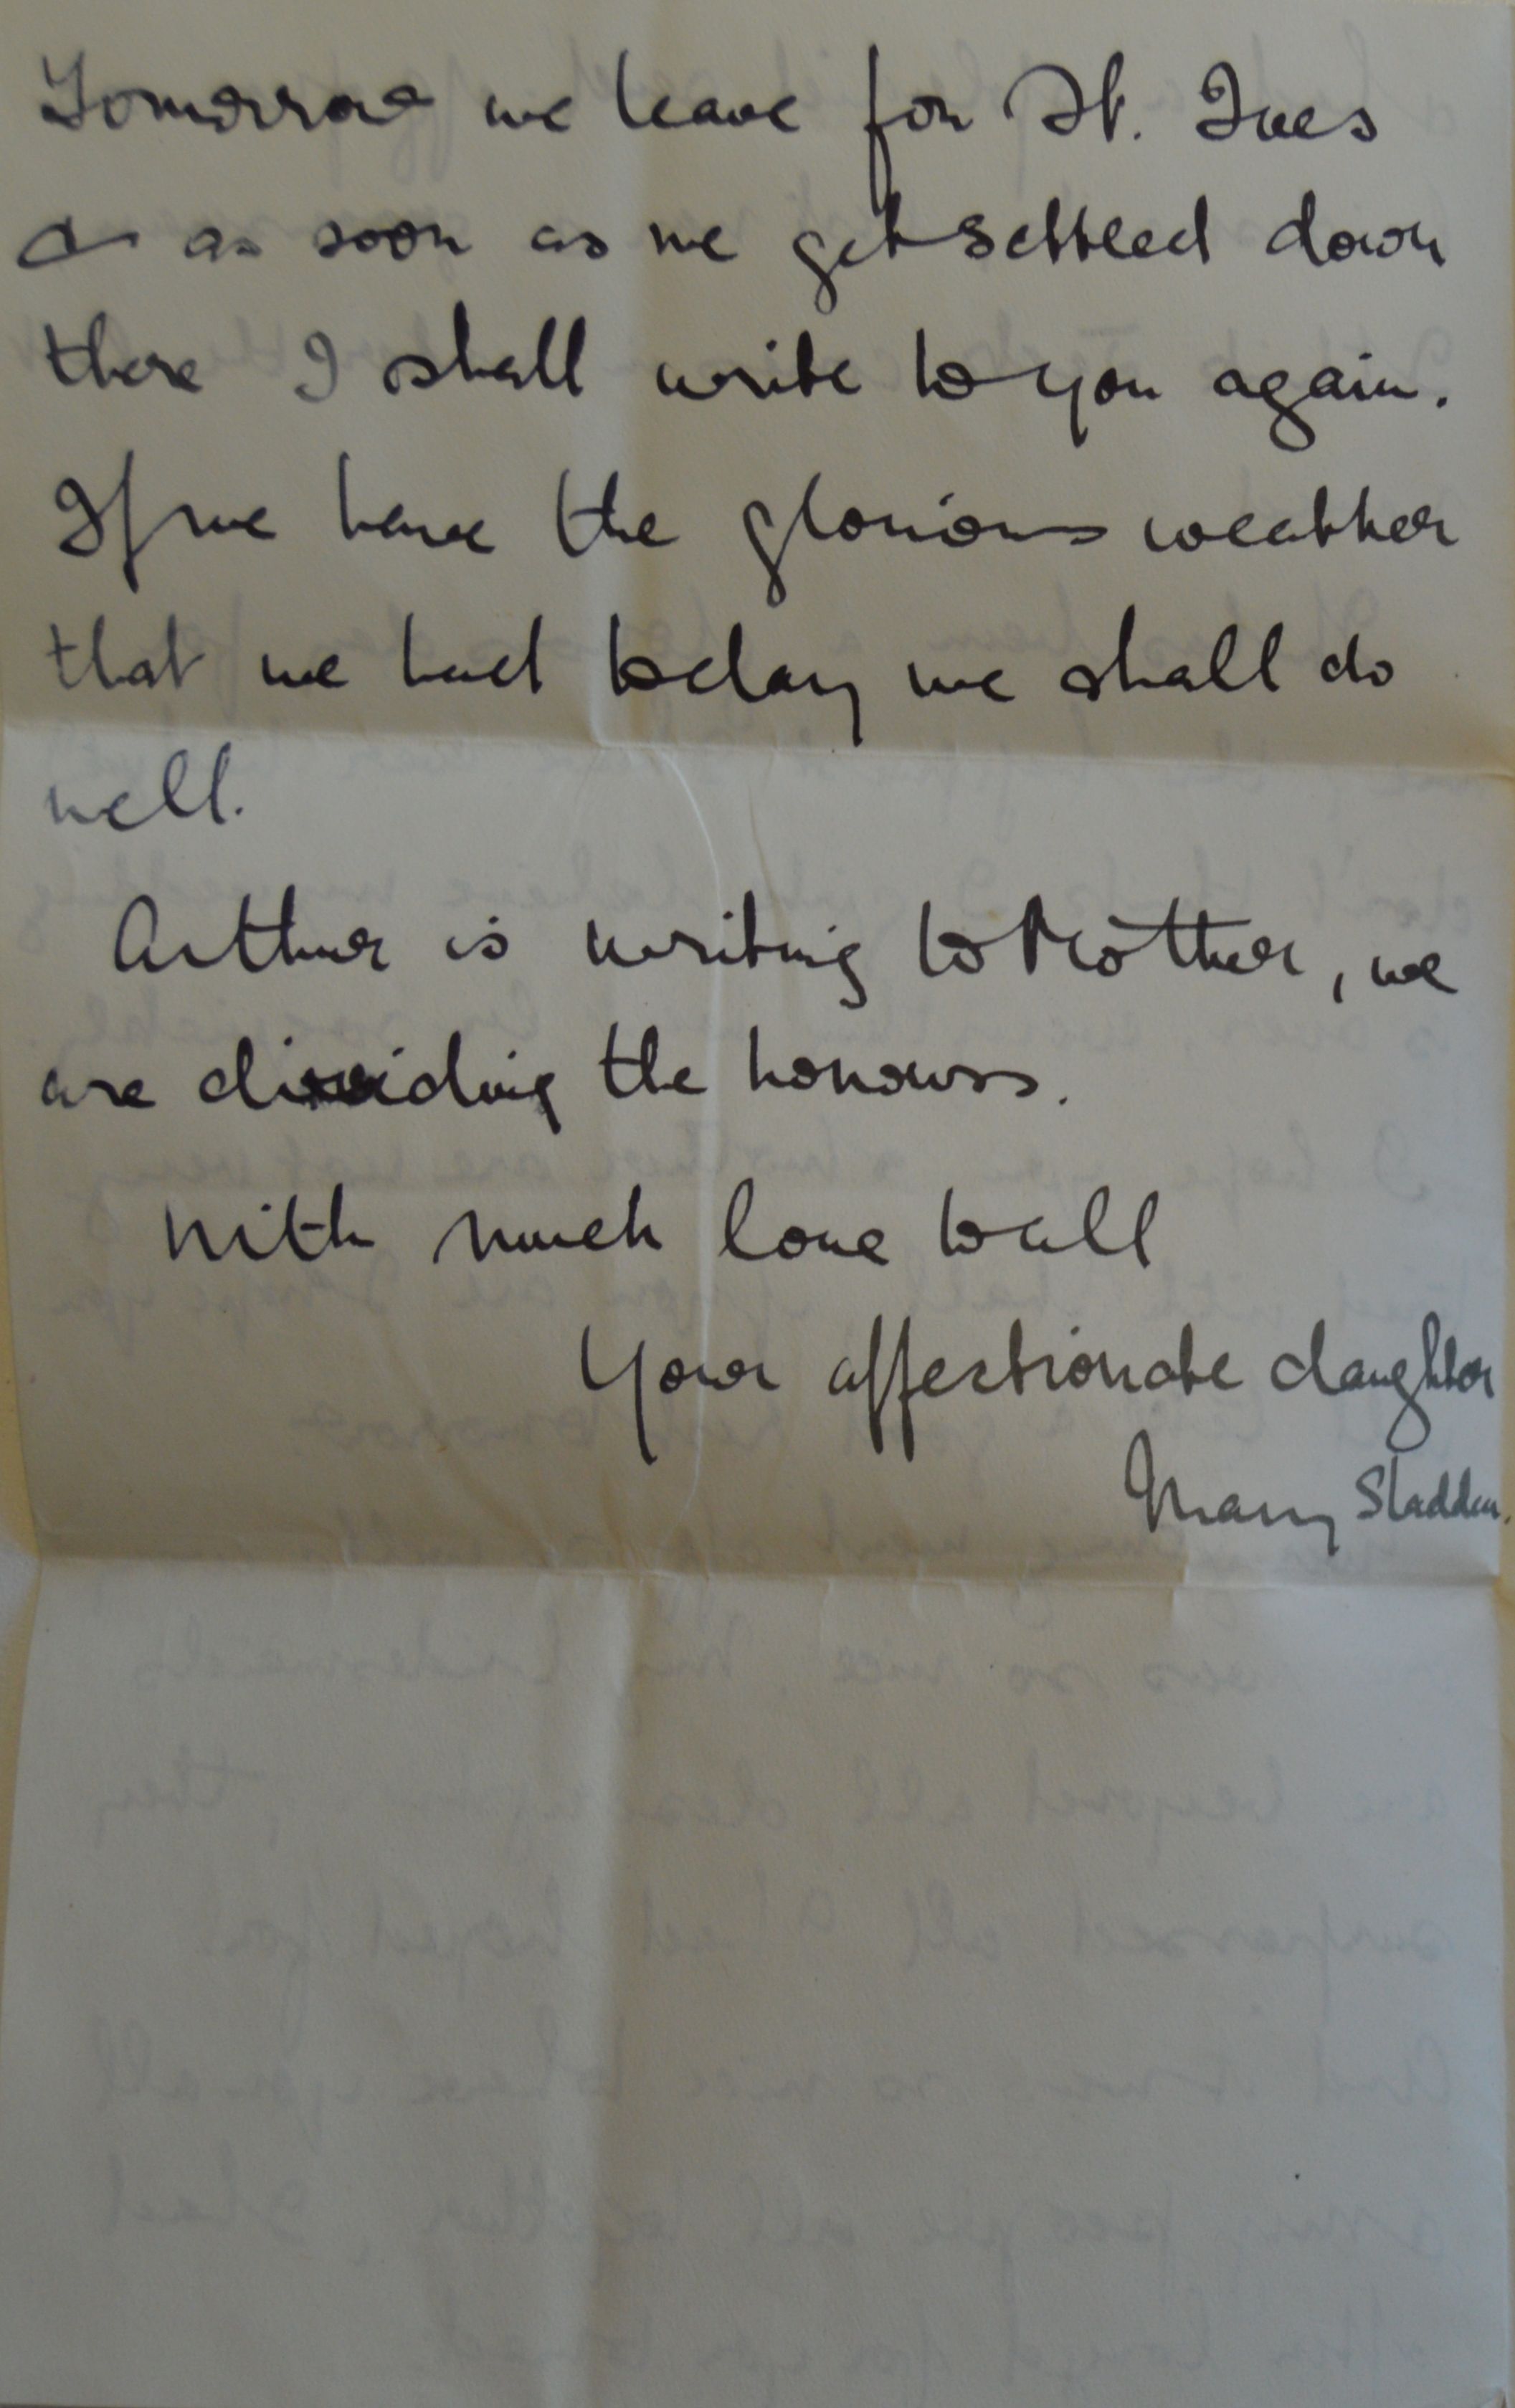 Tomorrow we leave for St. Ives
& as soon as we get settled down
there I shall write to you again.
If we have the glorious weather
that we had today we shall do
well.
Arthur is writing to Mother, we
are dividing the honours.
With much love to all
Your affectionate daughter
Mary Sladden.